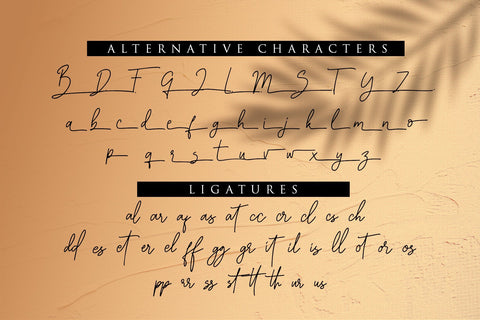 ALTERNATIVE CHARACTERS
B D F G I L M S T Y Z
a b c d e f g h i j k l m n o
p q r s t u v w x y z
LIGATURES
al ar af as at cc cr cl cs ch
dd es et er el ff gg gr it il is ll ot or os
pp rr ss st tt th ur us